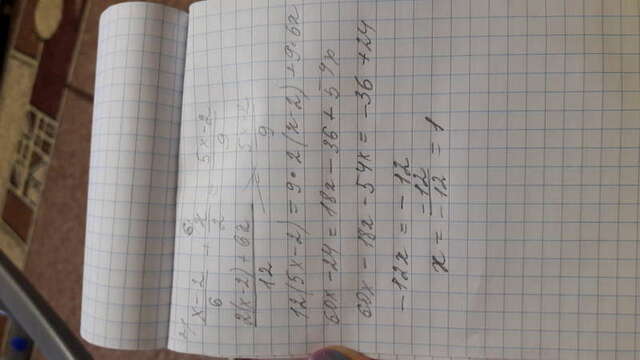 2) (x-2)/6 + x/2 = (5x-2)/9
(2(x-2)+6x)/12 = (5x-2)/9
12(5x-2) = 9·2(x-2)+9·6x
60x-24 = 18x-36+54x
60x-18x-54x = -36+24
-12x = -12
x = -12/-12 = 1